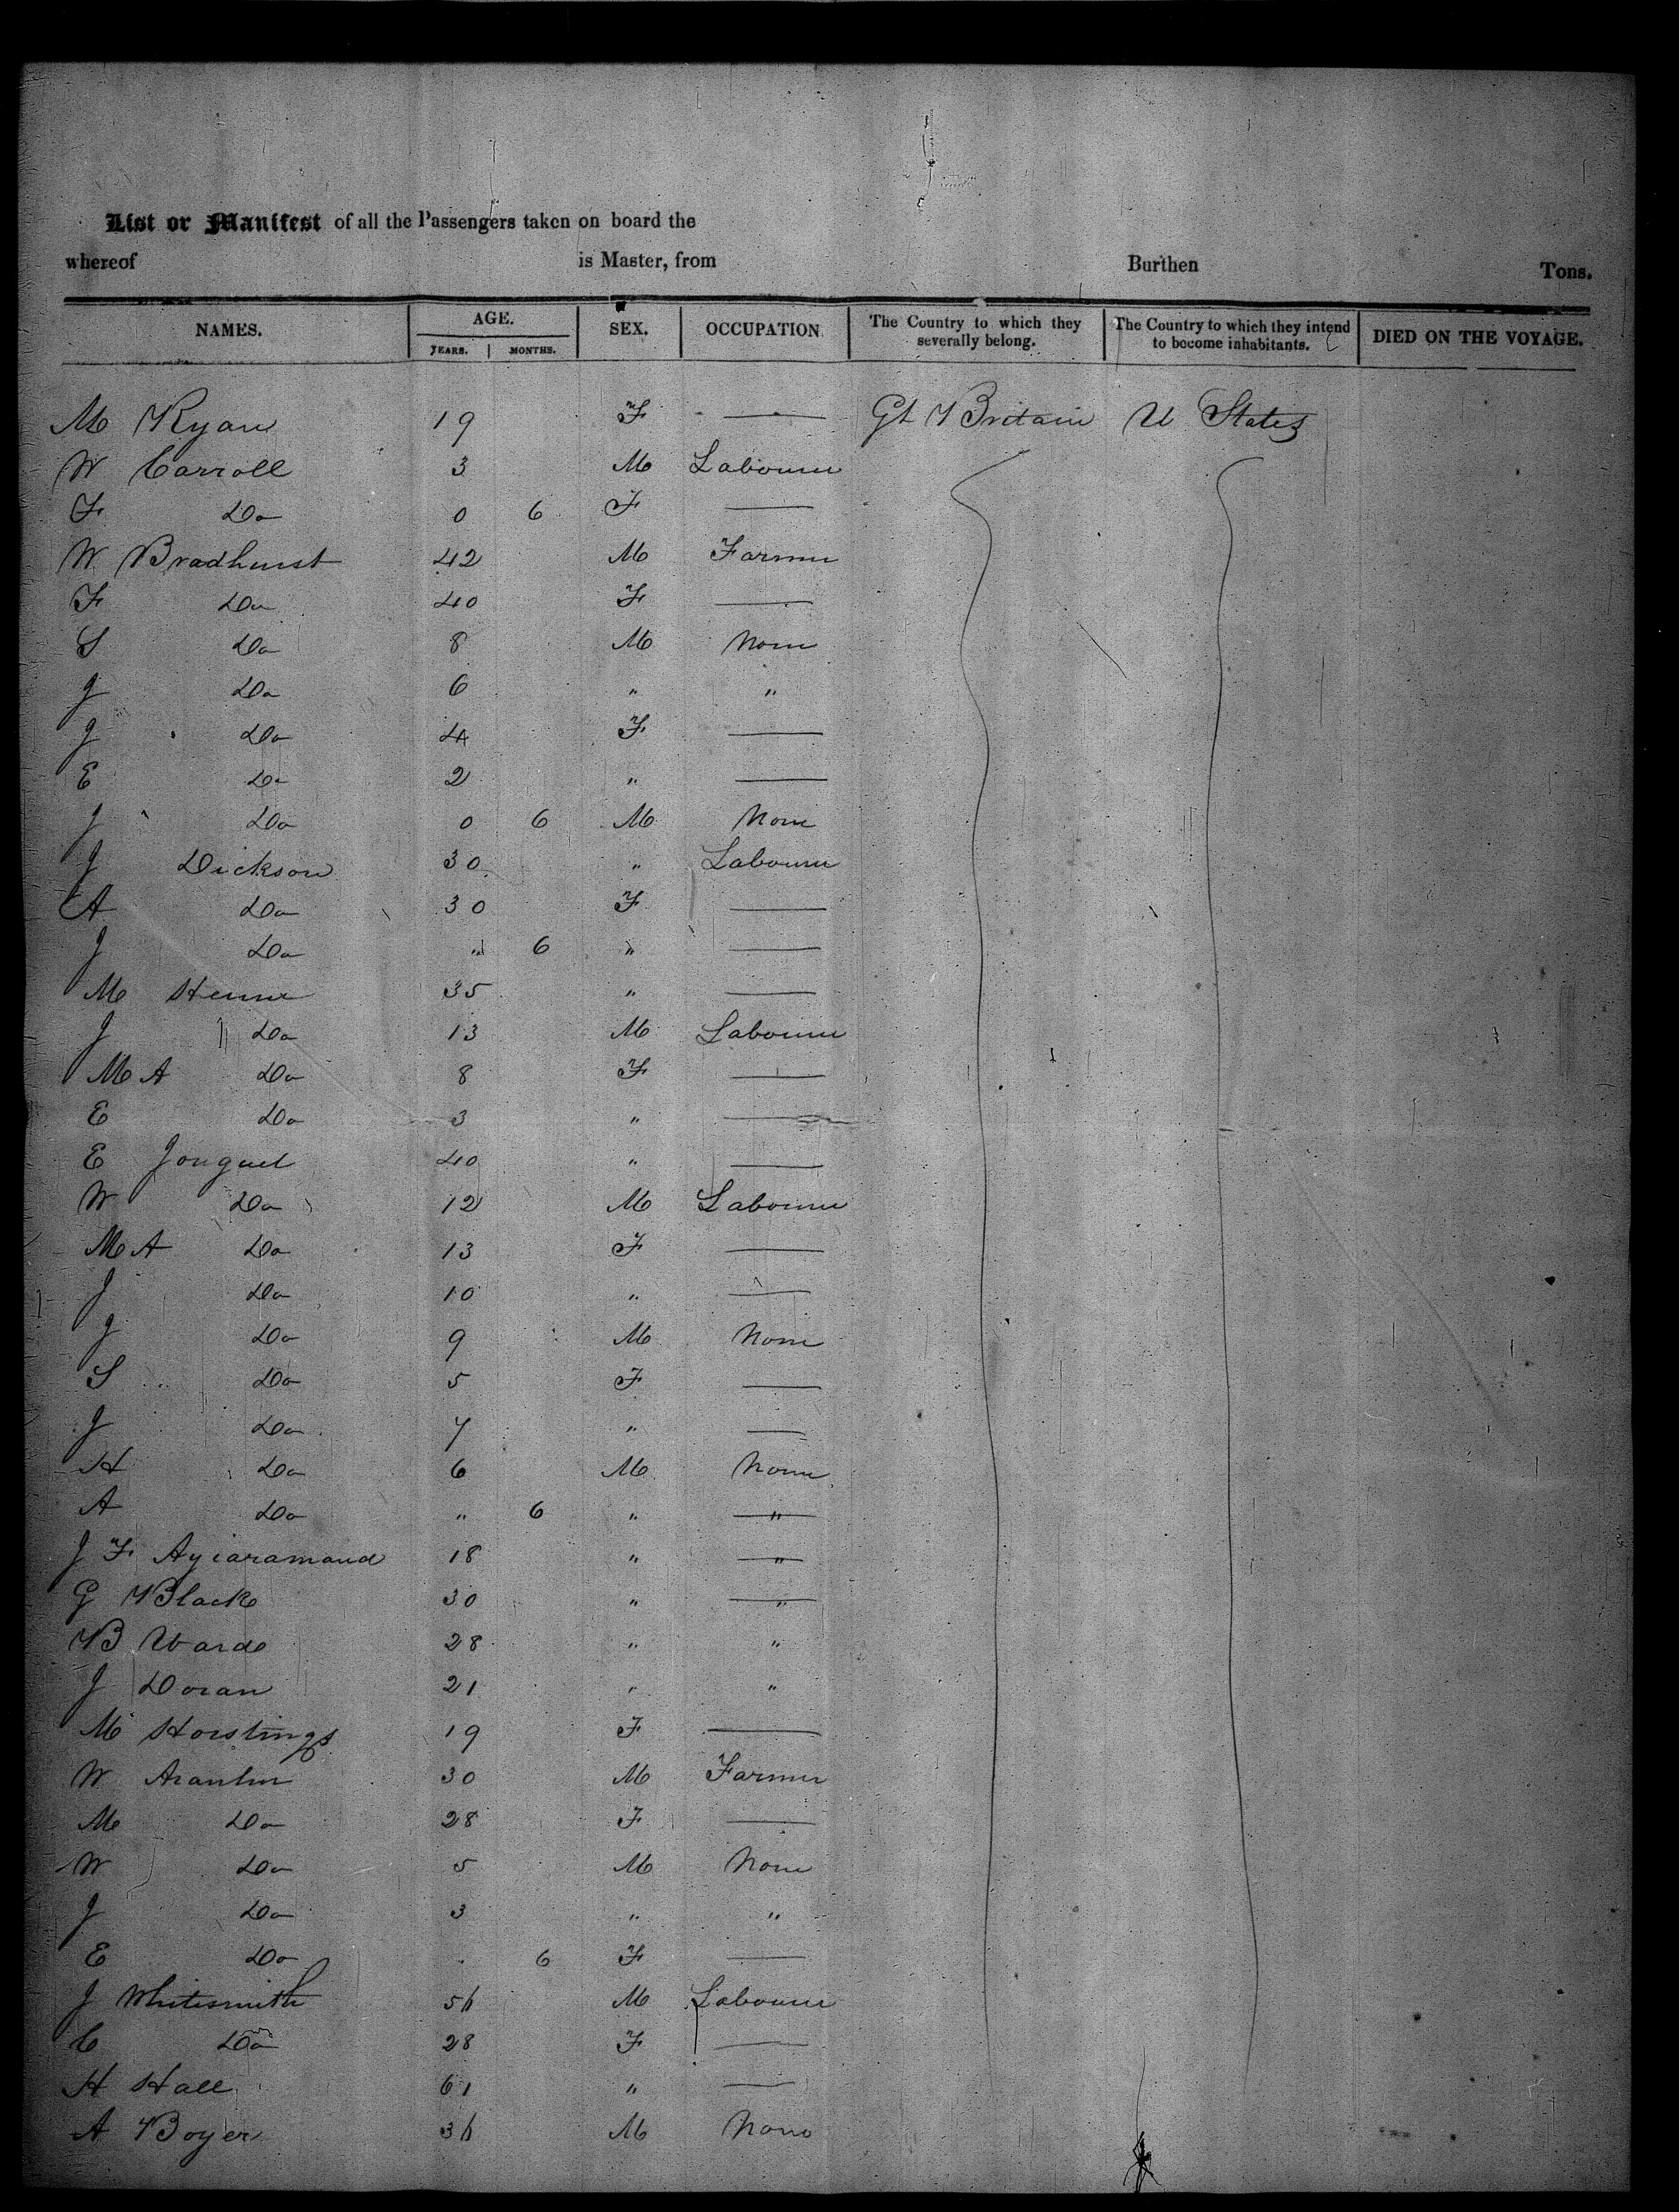 List or Manifest of all the Passengers taken on board the
whereof is Master, from Burthen Tons.
NAMES. AGE. SEX. OCCUPATION. The Country to which they severally belong. The Country to which they intend to become inhabitants. DIED ON THE VOYAGE.
YEARS. MONTHS.
M Ryan 19 F — Gt Britain U States
W Carroll 3 M Labourer
F Do 0 6 F —
W Bradhurst 42 M Farmer
F Do 40 F —
S Do 8 M None
J Do 6 " "
J Do 4 F —
E Do 2 " —
J Do 0 6 M None
J Dickson 30 " Labourer
A Do 30 F —
J Do " 6 " —
M 35 " —
J Do 13 M Labourer
M A Do 8 F —
E Do 3 " —
E 40 " —
W Do 12 M Labourer
M A Do 13 F —
J Do 10 " —
J Do 9 M None
S Do 5 F —
J Do 7 " —
H Do 6 M None
A Do " 6 " "
J F 18 " "
G Black 30 " "
B Ward 28 " "
J Doran 21 " "
M Horstings 19 F —
W 30 M Farmer
M Do 28 F —
W Do 5 M None
J Do 3 " "
E Do 6 F —
J Whitesmith M Labourer
C Do 28 F —
H Hall 61 " —
A Boyer M None